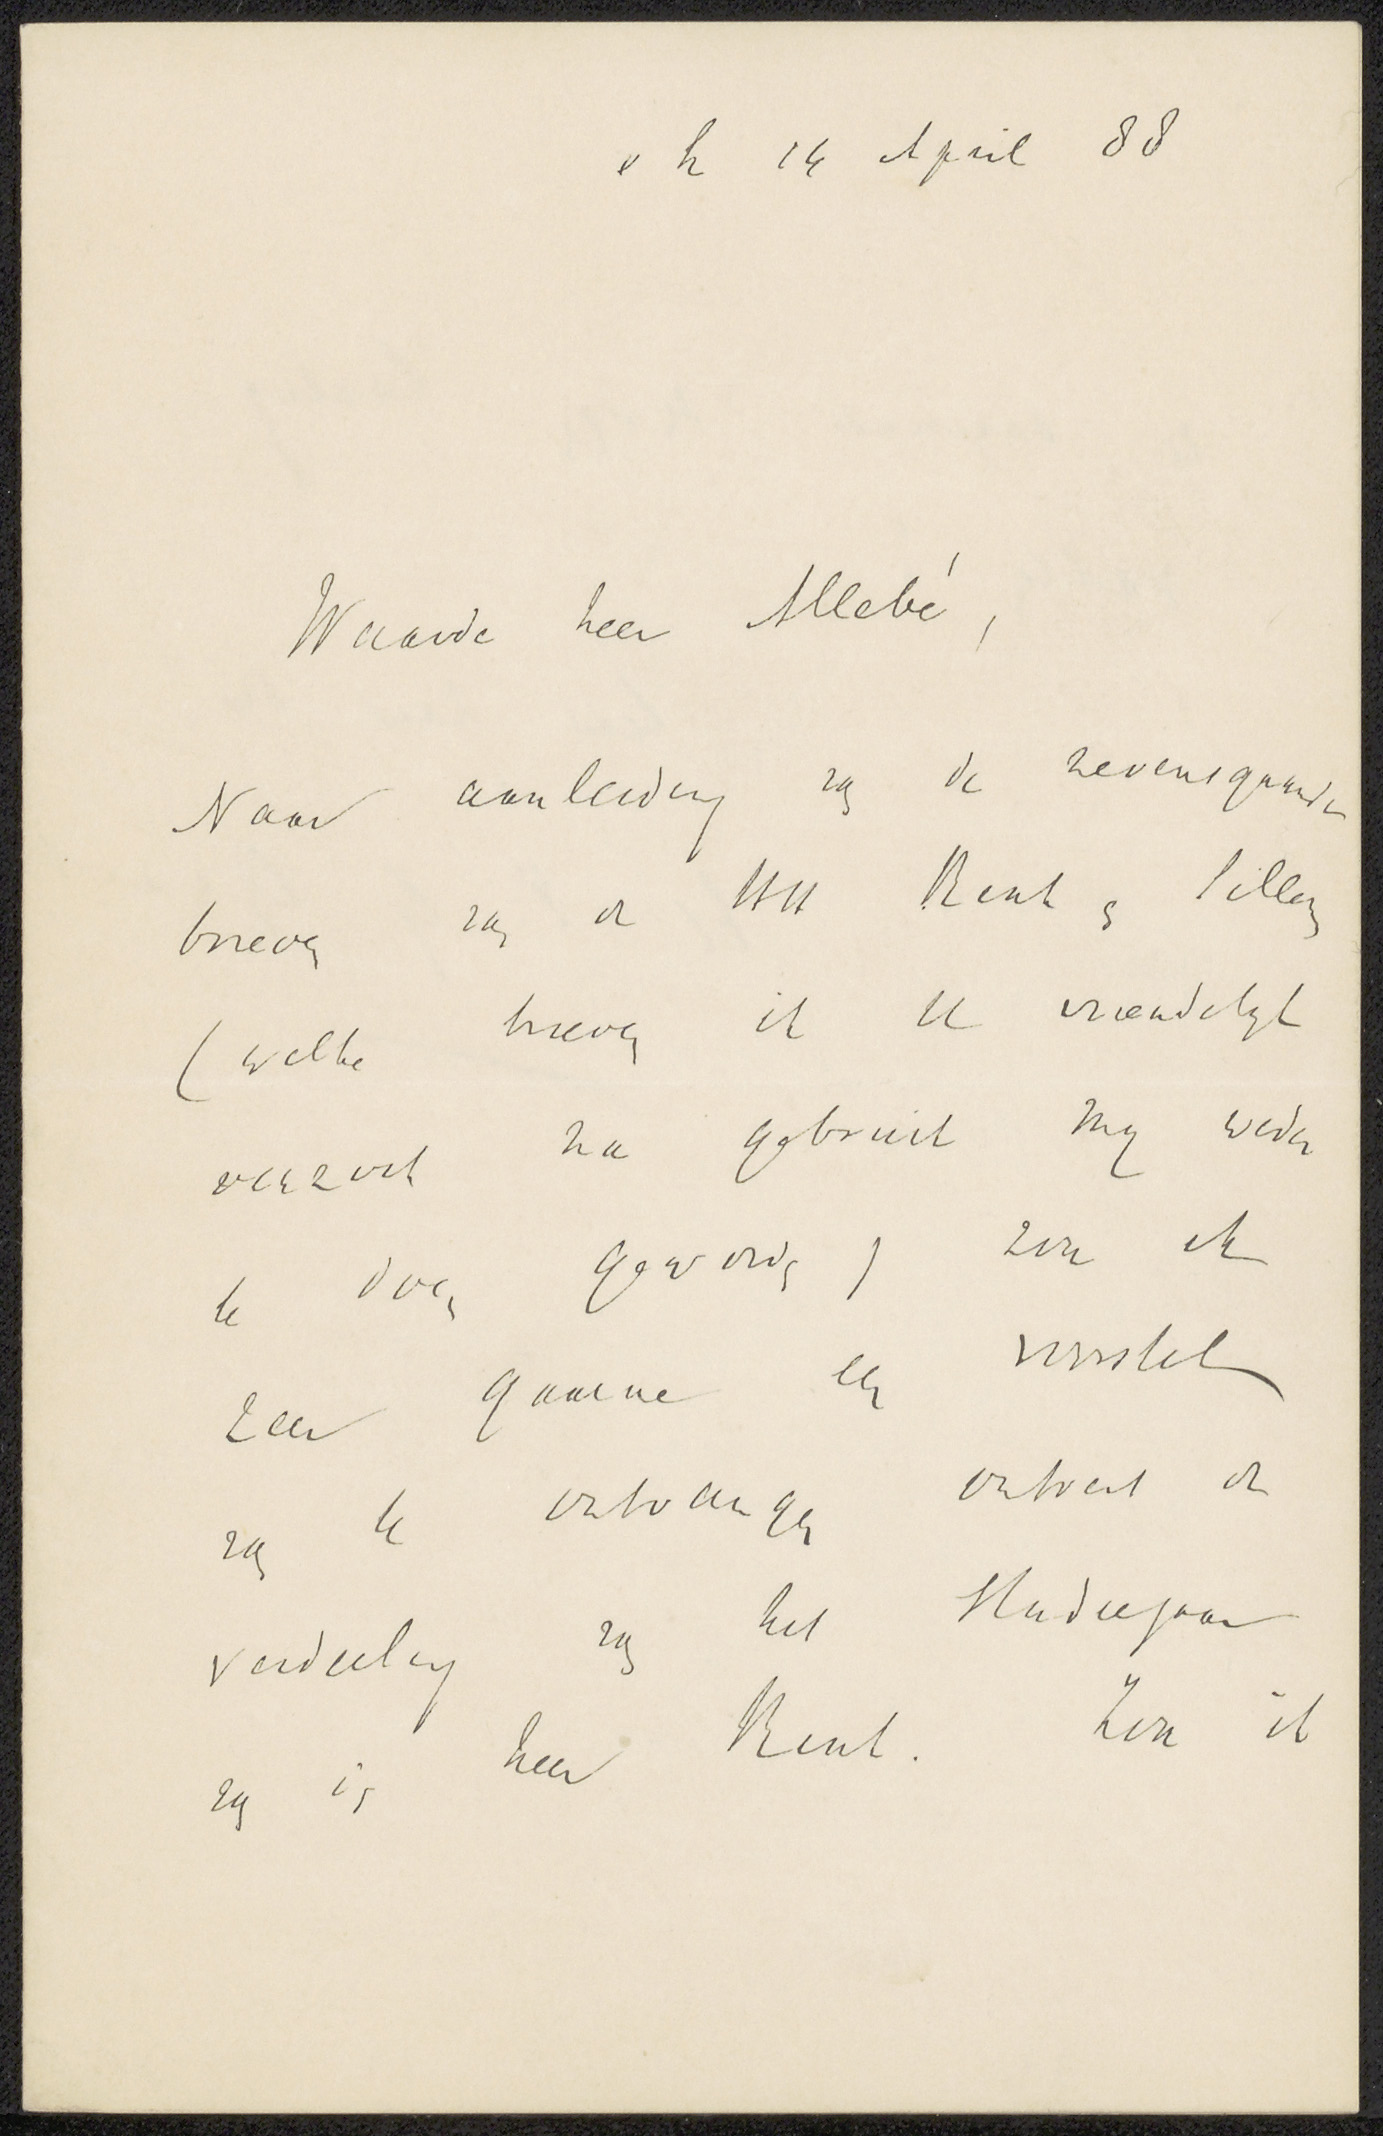 14 April 88
Waarde heer Allebé,
Naar aanleiding van de nevensgaande
brieven van de HH Renh en Pillen
(welke brieven ik U vriendelyk
verzoek na gebruik my weder
te doen geworden) zou ik
zeer gaarne een voorstel
van U ontvangen omtrent de
verdeeling van het studiejaar
van den heer Renh. Zou ik